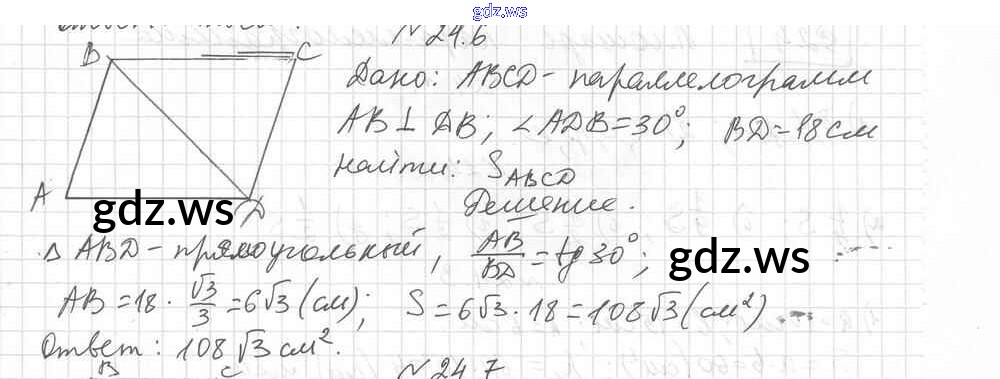 gdz.ws
N 24.6
B C
Дано: ABCD - параллелограмм
AB ⊥ DB; ∠ADB = 30°; BD = 18 см
Найти: S_ABCD
A D
gdz.ws
Решение.
Δ ABD - прямоугольный, AB/BD = tg 30°;
gdz.ws
AB = 18 · √3/3 = 6√3 (см); S = 6√3 · 18 = 108√3 (см²)
Ответ: 108√3 см².
B C N 24.7